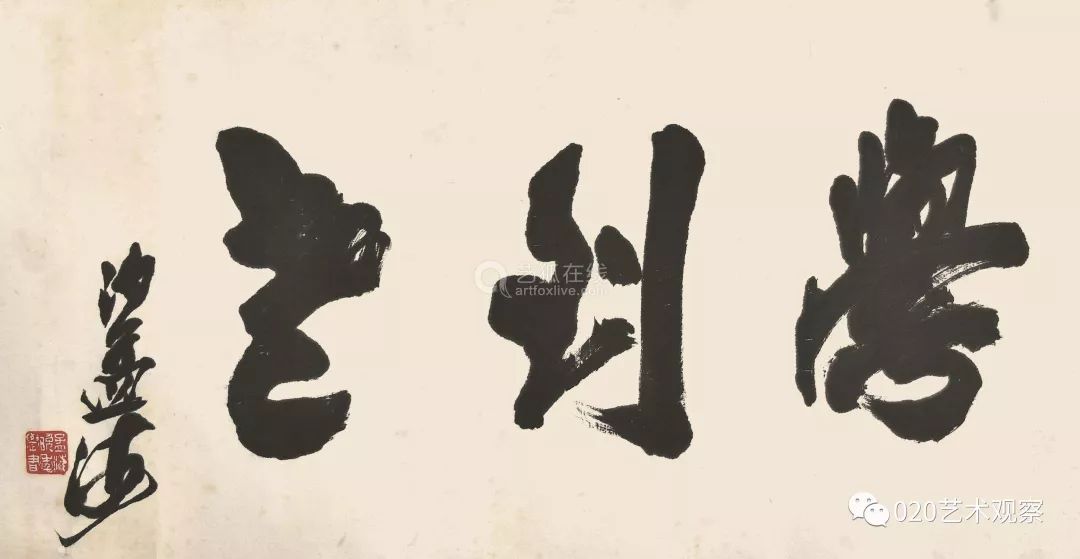 學到老
沙孟海
艺狐在线
artfoxlive.com
020艺术观察